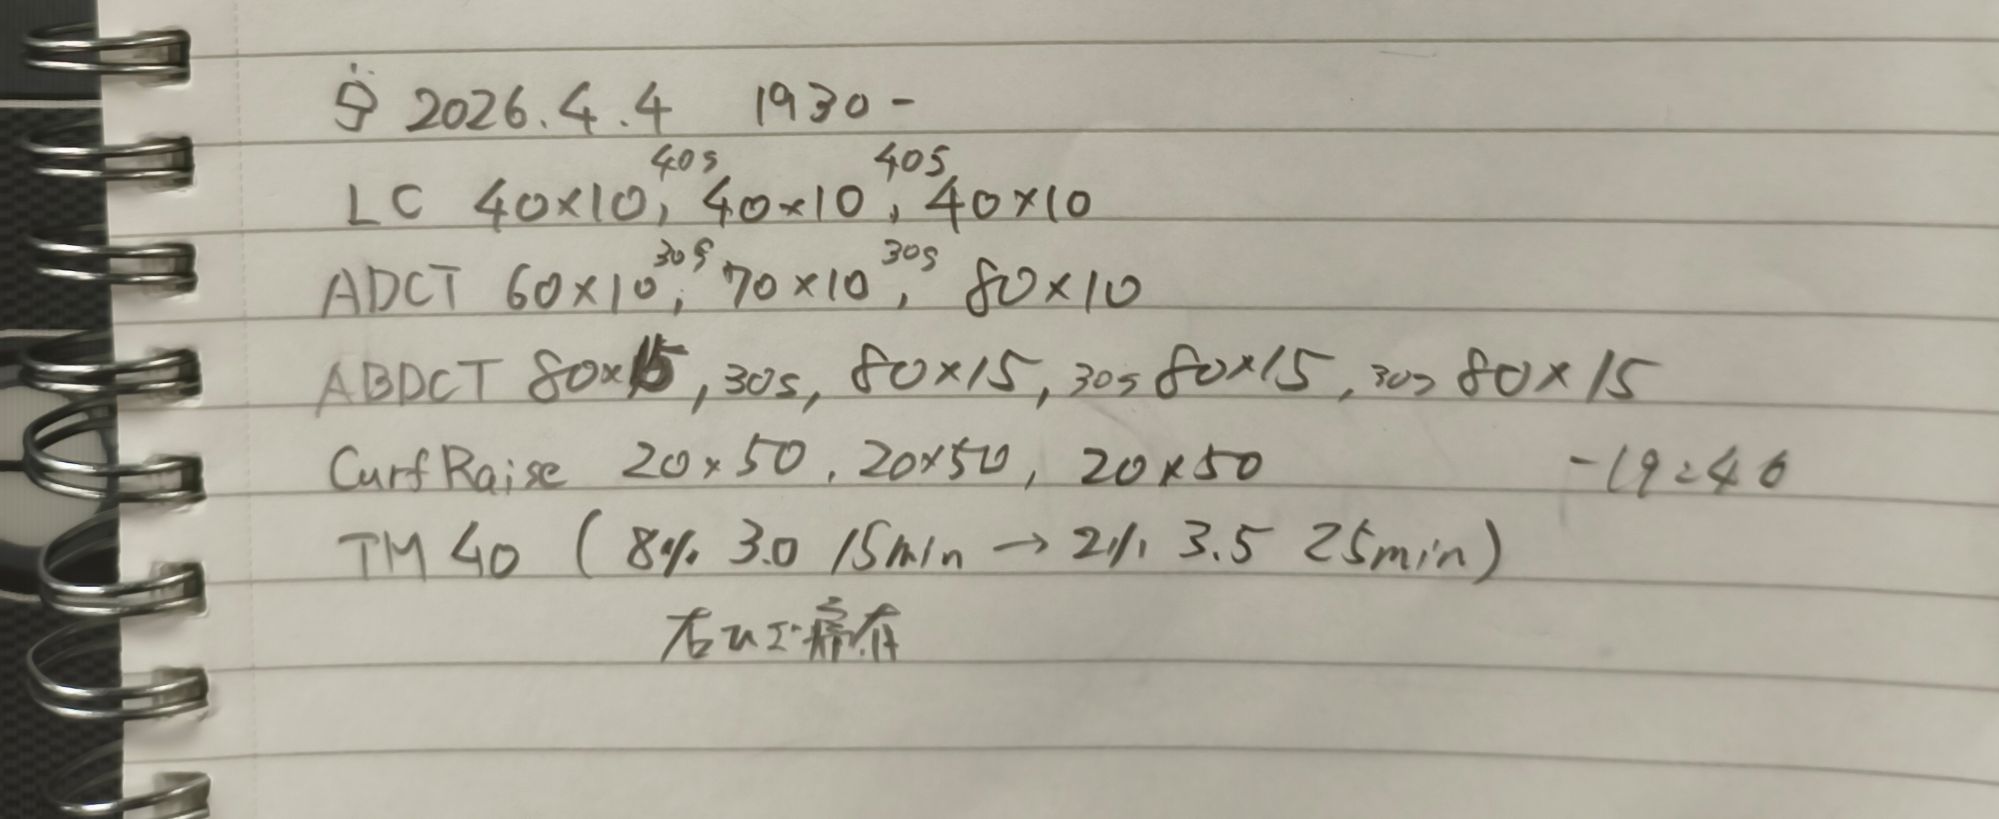 2026.4.4 1930-
LC 40×10, 40s 40×10, 40s 40×10
ADCT 60×10, 30s 70×10, 30s 80×10
ABDCT 80×15, 30s, 80×15, 30s 80×15, 30s 80×15
CurfRaise 20×50, 20×50, 20×50 -19:46
TM 40 (8% 3.0 15min → 2% 3.5 25min)
右ひざ痛有